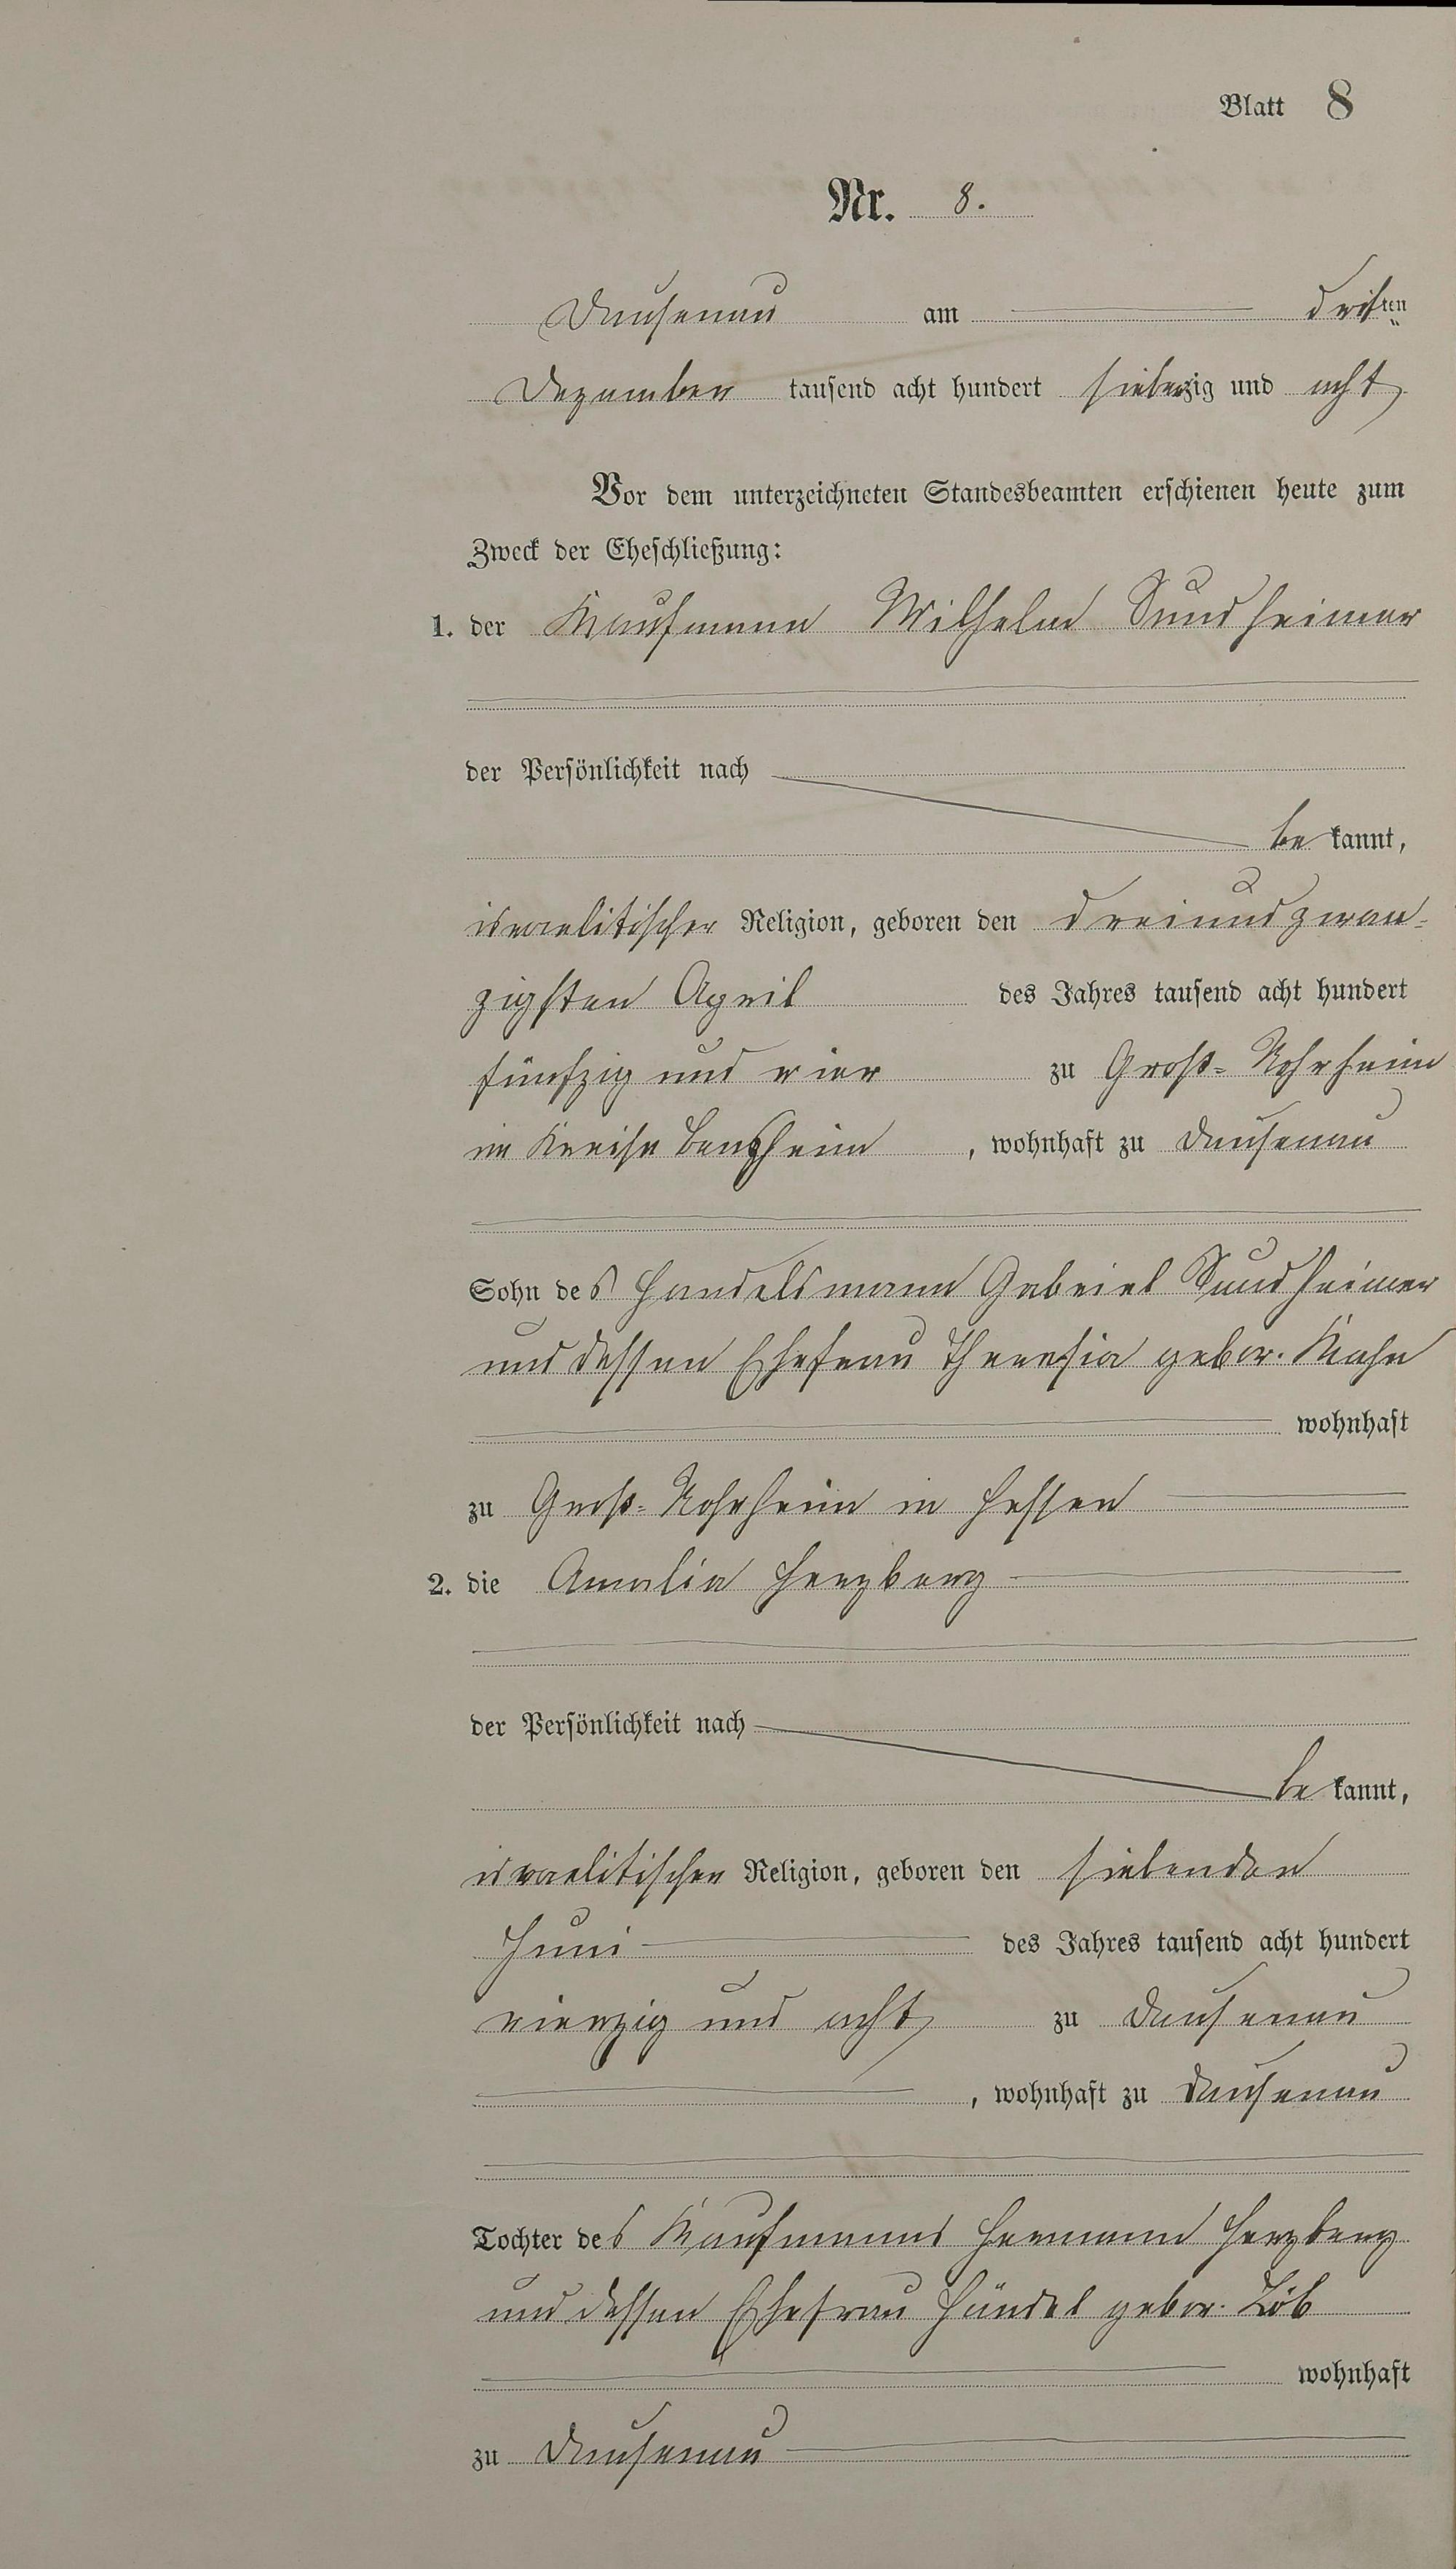 Blatt 8
Nr. 8.
Dausenau am dritten
Dezember tausend acht hundert siebenzig und acht
Vor dem unterzeichneten Standesbeamten erschienen heute zum
Zweck der Eheschließung:
1. der Kaufmann Wilhelm Sundheimer
der Persönlichkeit nach
be kannt,
israelitischer Religion, geboren den dreiundzwan-
zigsten April des Jahres tausend acht hundert
fünfzig und vier zu Groß-Rohrheim
im Kreise Bensheim, wohnhaft zu Dausenau
Sohn des Handelsmann Gabriel Sundheimer
und dessen Ehefrau Theresia gebor. Kahn
wohnhaft
zu Groß-Rohrheim in Hessen
2. die Amalia Herzberg
der Persönlichkeit nach
be kannt,
israelitischer Religion, geboren den siebenden
Juni des Jahres tausend acht hundert
vierzig und acht zu Dausenau
, wohnhaft zu Dausenau
Tochter des Kaufmanns Hermann Herzberg
und dessen Ehefrau Händel gebor. Löb
wohnhaft
zu Dausenau